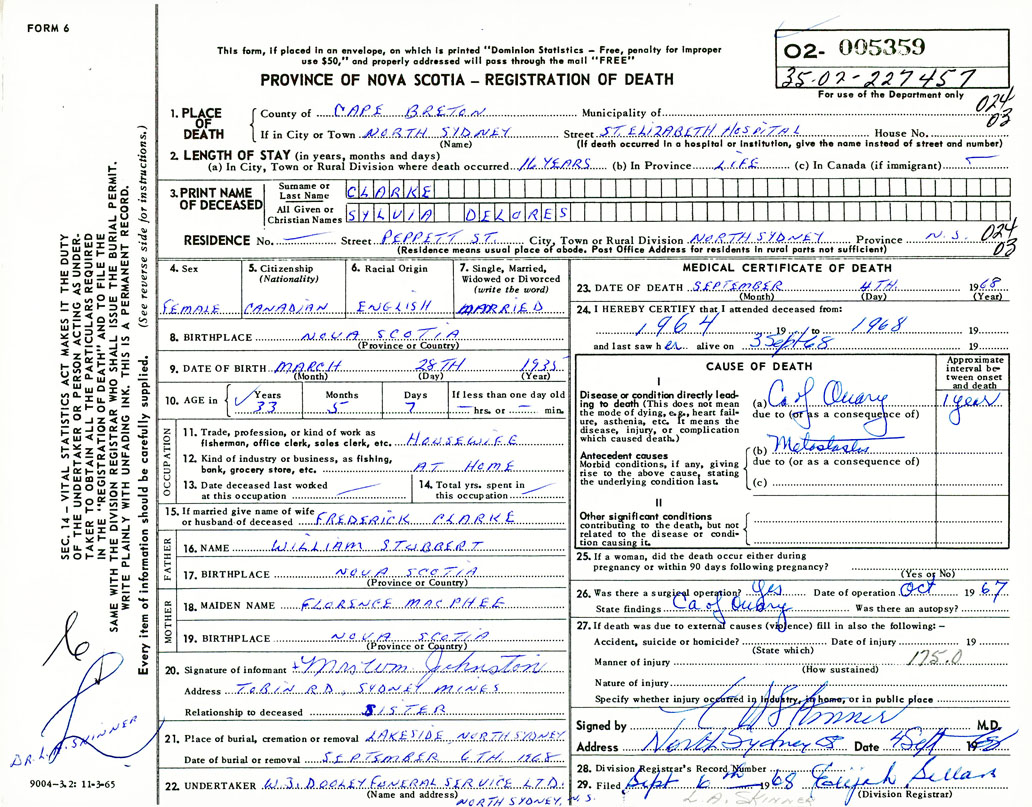 FORM 6
This form, if placed in an envelope, on which is printed "Dominion Statistics – Free, penalty for improper
use $50," and properly addressed will pass through the mail "FREE"
PROVINCE OF NOVA SCOTIA – REGISTRATION OF DEATH
02- 005359
35-02-227457
For use of the Department only
024
03
1. PLACE OF DEATH
County of CAPE BRETON Municipality of
If in City or Town NORTH SYDNEY Street ST ELIZABETH HOSPITAL House No.
(Name) (If death occurred in a hospital or institution, give the name instead of street and number)
2. LENGTH OF STAY (in years, months and days)
(a) In City, Town or Rural Division where death occurred 16 YEARS (b) In Province LIFE (c) In Canada (if immigrant) —
3. PRINT NAME OF DECEASED
Surname or Last Name CLARKE
All Given or Christian Names SYLVIA DELORES
RESIDENCE No. — Street PEPPETT ST. City, Town or Rural Division NORTH SYDNEY Province N.S.
(Residence means usual place of abode. Post Office Address for residents in rural parts not sufficient)
024
03
4. Sex
FEMALE
5. Citizenship
(Nationality)
CANADIAN
6. Racial Origin
ENGLISH
7. Single, Married,
Widowed or Divorced
(write the word)
MARRIED
8. BIRTHPLACE NOVA SCOTIA
(Province or Country)
9. DATE OF BIRTH MARCH 28TH 1935
(Month) (Day) (Year)
10. AGE in Years Months Days If less than one day old
33 5 7 – hrs. or – min.
OCCUPATION
11. Trade, profession, or kind of work as
fisherman, office clerk, sales clerk, etc. HOUSEWIFE
12. Kind of industry or business, as fishing,
bank, grocery store, etc. AT HOME
13. Date deceased last worked
at this occupation —
14. Total yrs. spent in
this occupation —
15. If married give name of wife
or husband of deceased FREDERICK CLARKE
FATHER
16. NAME WILLIAM STUBBERT
17. BIRTHPLACE NOVA SCOTIA
(Province or Country)
MOTHER
18. MAIDEN NAME FLORENCE MACPHEE
19. BIRTHPLACE NOVA SCOTIA
(Province or Country)
20. Signature of informant Mrs Wm Johnston
Address TOBIN RD, SYDNEY MINES
Relationship to deceased SISTER
21. Place of burial, cremation or removal LAKESIDE, NORTH SYDNEY
Date of burial or removal SEPTEMBER 6TH 1968
22. UNDERTAKER W.J. DOOLEY FUNERAL SERVICE LTD.
(Name and address)
NORTH SYDNEY, N.S.
MEDICAL CERTIFICATE OF DEATH
23. DATE OF DEATH SEPTEMBER 4TH 1968
(Month) (Day) (Year)
24. I HEREBY CERTIFY that I attended deceased from:
1964 19 to 1968 19
and last saw her alive on 3 Sept 68 19
CAUSE OF DEATH
Approximate
interval be-
tween onset
and death
I
Disease or condition directly lead-
ing to death (This does not mean
the mode of dying, e.g., heart fail-
ure, asthenia, etc. It means the
disease, injury, or complication
which caused death.)
(a) Ca of Ovary 1 year
due to (or as a consequence of)
Antecedent causes
Morbid conditions, if any, giving
rise to the above cause, stating
the underlying condition last.
(b) Metastasis
due to (or as a consequence of)
(c)
II
Other significant conditions
contributing to the death, but not
related to the disease or condi-
tion causing it.
25. If a woman, did the death occur either during
pregnancy or within 90 days following pregnancy?
(Yes or No)
26. Was there a surgical operation? Yes Date of operation Oct 1967
State findings Ca of Ovary Was there an autopsy?
27. If death was due to external causes (violence) fill in also the following: –
Accident, suicide or homicide? Date of injury 19
(State which)
Manner of injury 175.0
(How sustained)
Nature of injury
Specify whether injury occurred in Industry, in home, or in public place
Signed by Skinner M.D.
Address North Sydney Date 4 Sept 1968
28. Division Registrar's Record Number
29. Filed Sept 6th 1968 Elijah
(Division Registrar)
L.A. SKINNER
SEC. 14 – VITAL STATISTICS ACT MAKES IT THE DUTY
OF THE UNDERTAKER OR PERSON ACTING AS UNDER-
TAKER TO OBTAIN ALL THE PARTICULARS REQUIRED
IN THE "REGISTRATION OF DEATH" AND TO FILE THE
SAME WITH THE DIVISION REGISTRAR WHO SHALL ISSUE THE BURIAL PERMIT.
WRITE PLAINLY WITH UNFADING INK. THIS IS A PERMANENT RECORD.
Every item of information should be carefully supplied. (See reverse side for instructions.)
DR. L.A. SKINNER
9004-3.2: 11-3-65